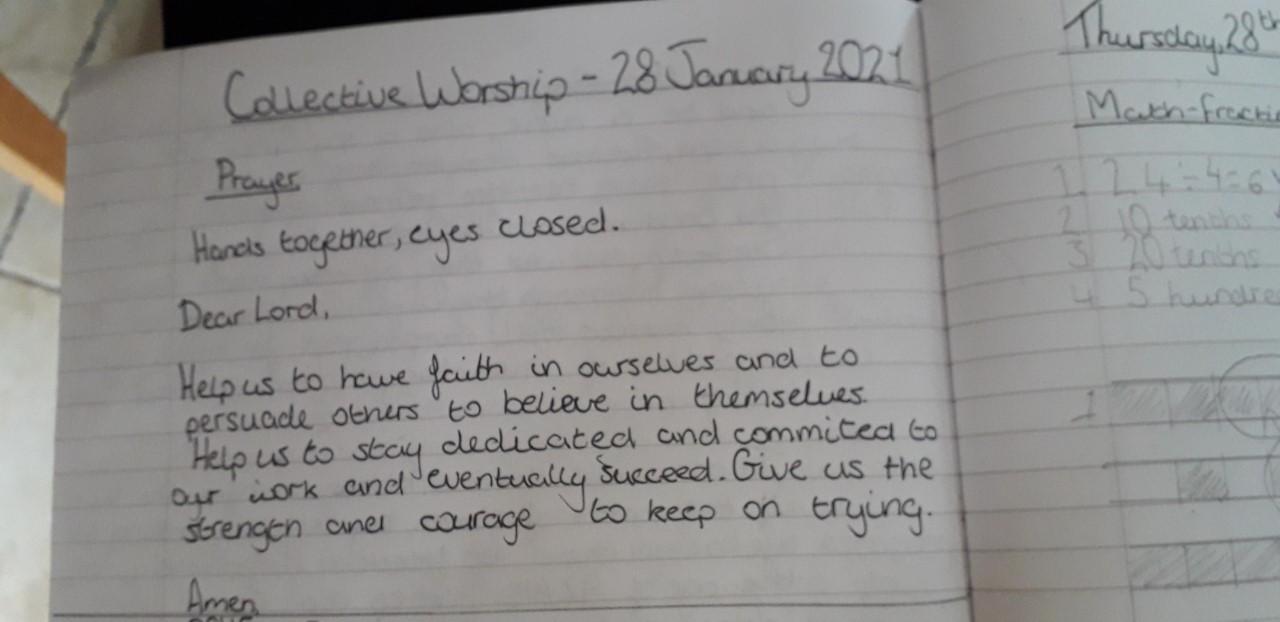 Collective Worship - 28 January 2021
Prayer
Hands together, eyes closed.
Dear Lord,
Help us to have faith in ourselves and to
persuade others to believe in themselves.
Help us to stay dedicated and commited to
our work and eventually succeed. Give us the
strength and courage to keep on trying.
Amen
Thursday, 28th
Math-fracti
1. 24÷4=6
2 10 tenths
3 20 tenths
4 5 hundre
1